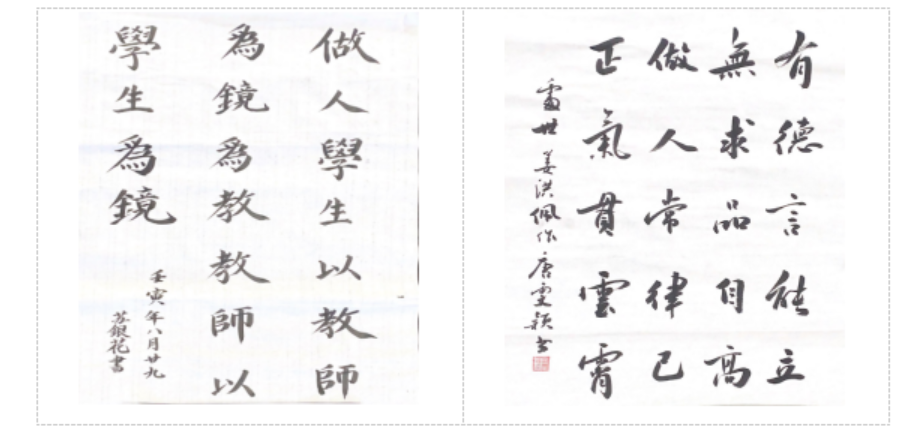 做人學生以教師
為鏡為教教師以
學生為鏡
壬寅年八月廿九
芳銀花書
有德言能立
無求品自高
做人常律己
正氣貫雲霄
處世 姜洪佩作 唐雯穎書